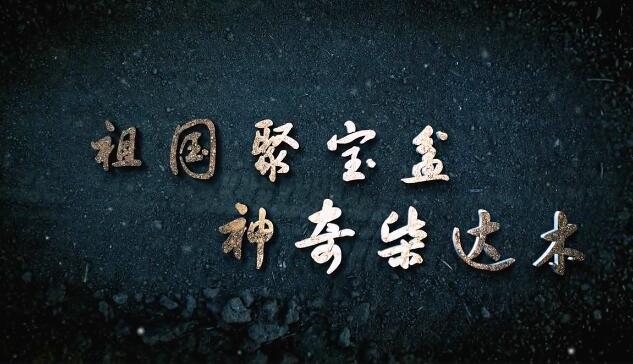 祖国聚宝盆
神奇柴达木